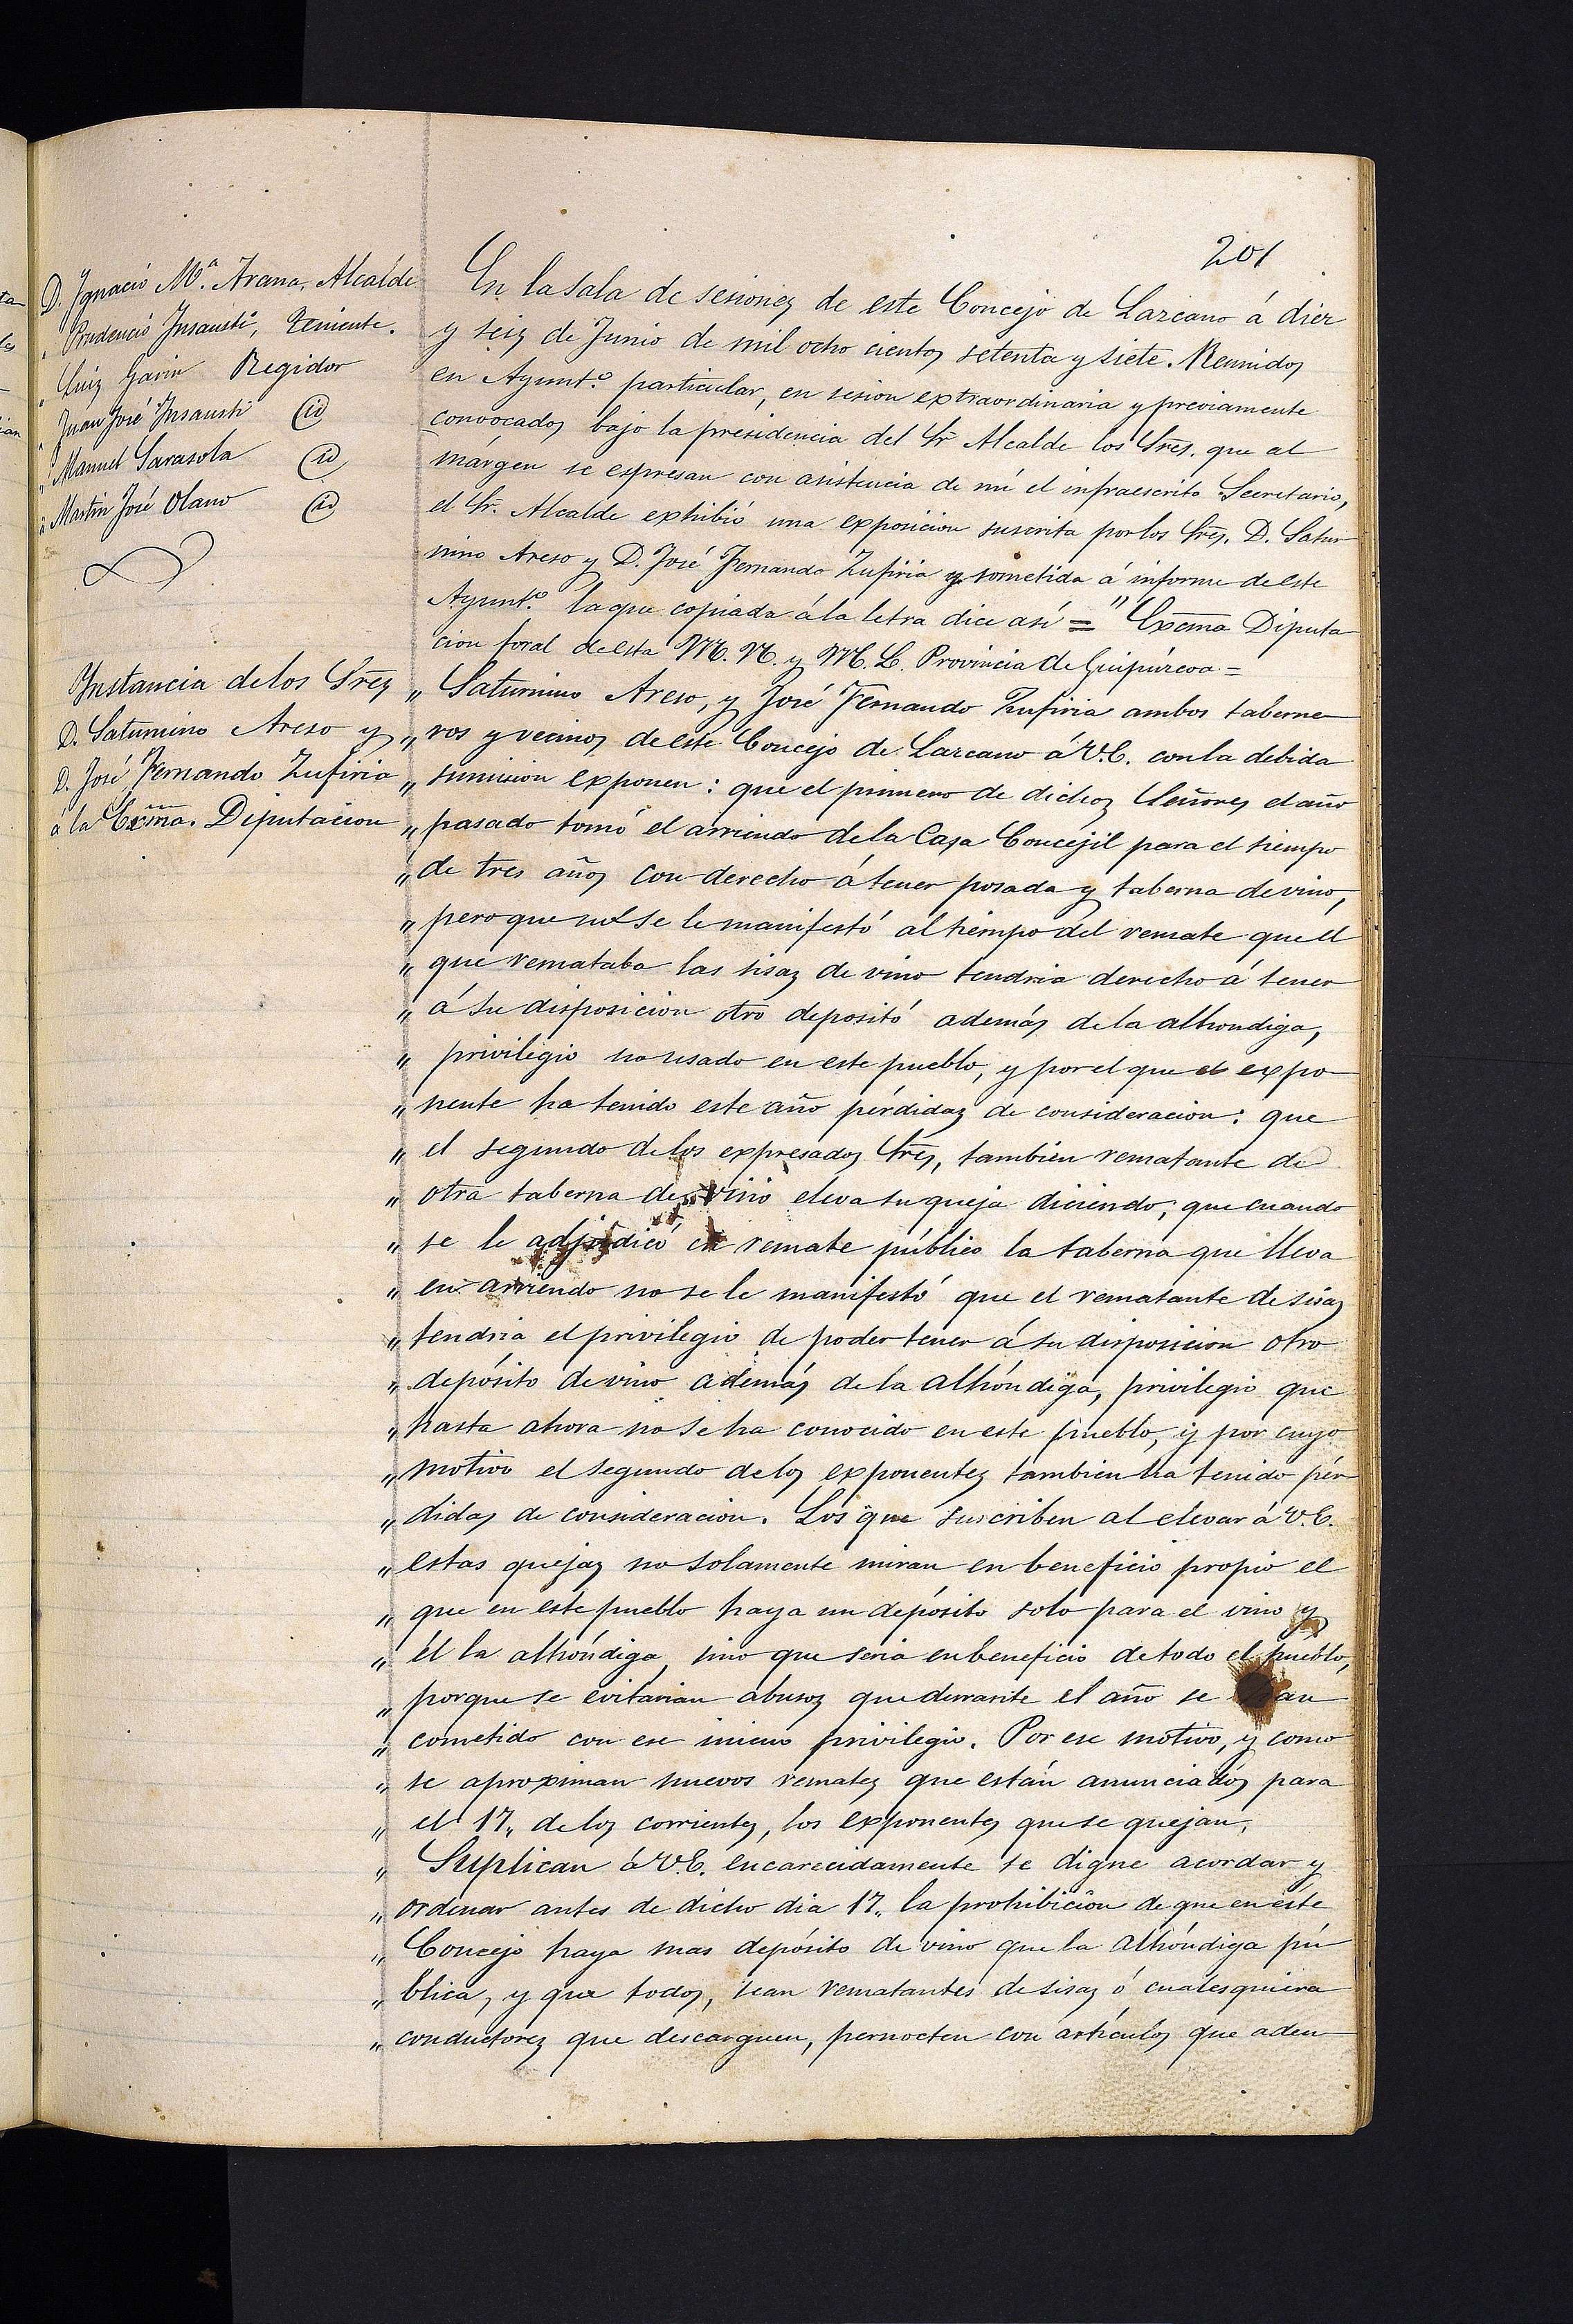 201
D. Ygnacio M.ª Arana, Alcalde
" Prudencio Insausti, Teniente.
" Luiz Garin Regidor
" Juan José Insausti id
" Manuel Sarasola id
" Martin José Olano id
Ynstancia de los Sres
D. Saturnino Areso y
D. José Fernando Zufiria
á la Excma. Diputacion
En la Sala de sesiones de este Concejo de Lazcano á diez
y seis de Junio de mil ocho cientos setenta y siete. Reunidos
en Ayunt.º particular, en sesion extraordinaria y previamente
convocados bajo la presidencia del Sr Alcalde los Sres. que al
márgen se espresan con asistencia de mí el infraescrito Secretario,
el Sr. Alcalde exhibió una exposicion suscrita por los Sres. D. Satur
nino Areso y D. José Fernando Zufiria y sometida á informe de este
Ayunt.º la que copiada á la letra dice así = " Excma Diputa
cion foral de esta M. N. y M. L. Provincia de Guipúzcoa =
" Saturnino Areso, y José Fernando Zufiria ambos taberne
" ros y vecinos de este Concejo de Lazcano á V.E. con la debida
" sumision exponen: que el primero de dichos Señores el año
" pasado tomó el arriendo de la Casa Concejil para el tiempo
" de tres años con derecho á tener posada y taberna de vino,
" pero que no se le manifestó al tiempo del remate que el
" que remataba las sisas de vino tendria derecho á tener
" á su disposicion otro depositó además de la alhondiga,
" privilegio no usado en este pueblo, y por el que el expo
" nente ha tenido este año pérdidas de consideracion: que
" el segundo de los expresados Sres, tambien rematante de
" otra taberna de vino eleva su queja diciendo; que cuando
" se le adjudicó en remate público la taberna que lleva
" en arriendo no se le manifestó que el rematante de sisas
" tendria el privilegio de poder tener á su disposicion otro
" depósito de vino además de la alhóndiga, privilegio que
" hasta ahora no se ha conocido en este pueblo, y por cuyo
" motivo el segundo de los exponentes tambien ha tenido pér
" didas de consideracion. Los que suscriben al elevar á V.E.
" estas quejas no solamente miran en beneficio propio el
" que en este pueblo haya un depósito solo para el vino y
" él la alhóndiga, sino que seria en beneficio de todo el pueblo,
" porque se evitarian abusos que durrante el año se han
" cometido con ese nuevo privilegio. Por ese motivo, y como
" se aproximan nuevos remates que están anunciados para
" el 17,, de los corrientes, los exponentes que se quejan,
" Suplican á V.E. encarecidamente se digne acordar y
" ordenar antes de dicho dia 17,, la prohibicion de que en este
" Concejo haya mas depósito de vino que la alhóndiga pú
" blica, y que todos, sean rematantes de sisas ó cualesquiera
" conductores que descarguen, pernocten con artículos que aden